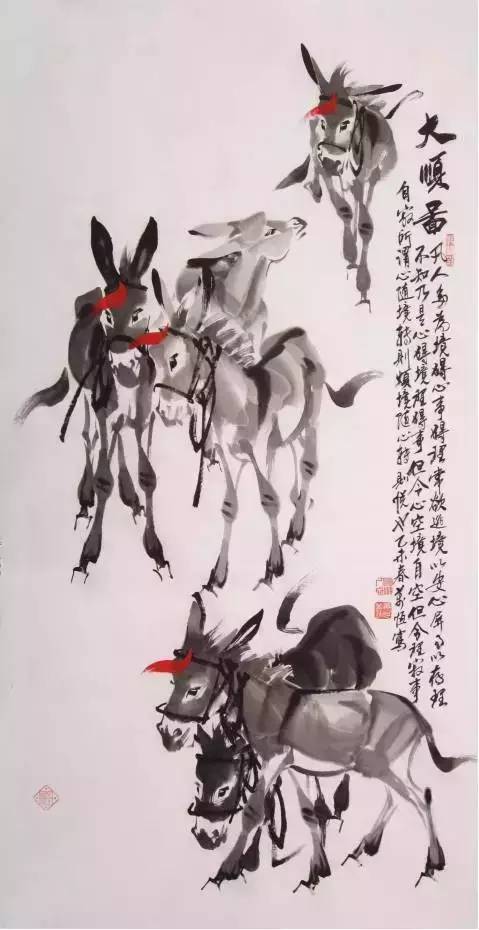 大順啚
凡人多為境碍心事碍理常欲逃境以安心屏事以存理
不知乃是心碍境理碍事但令心空境自空但令理寂事
自寂所謂心随境转则煩境随心转则悦也乙未春萬恒寫